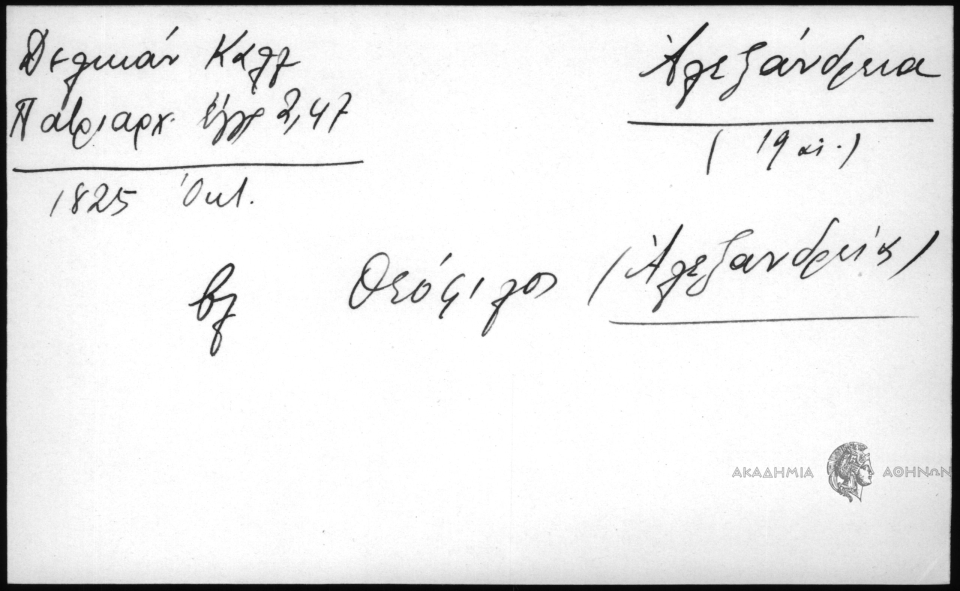 Δελικάν Καλλ
Πατριαρχ. Έγγρ 2,47
1825 Όκτ.
Ἀλεξάνδρεια
( 19 αἰ. )
βλ Θεόφιλος (Ἀλεξανδρείας)
ΑΚΑΔΗΜΙΑ ΑΘΗΝΩΝ